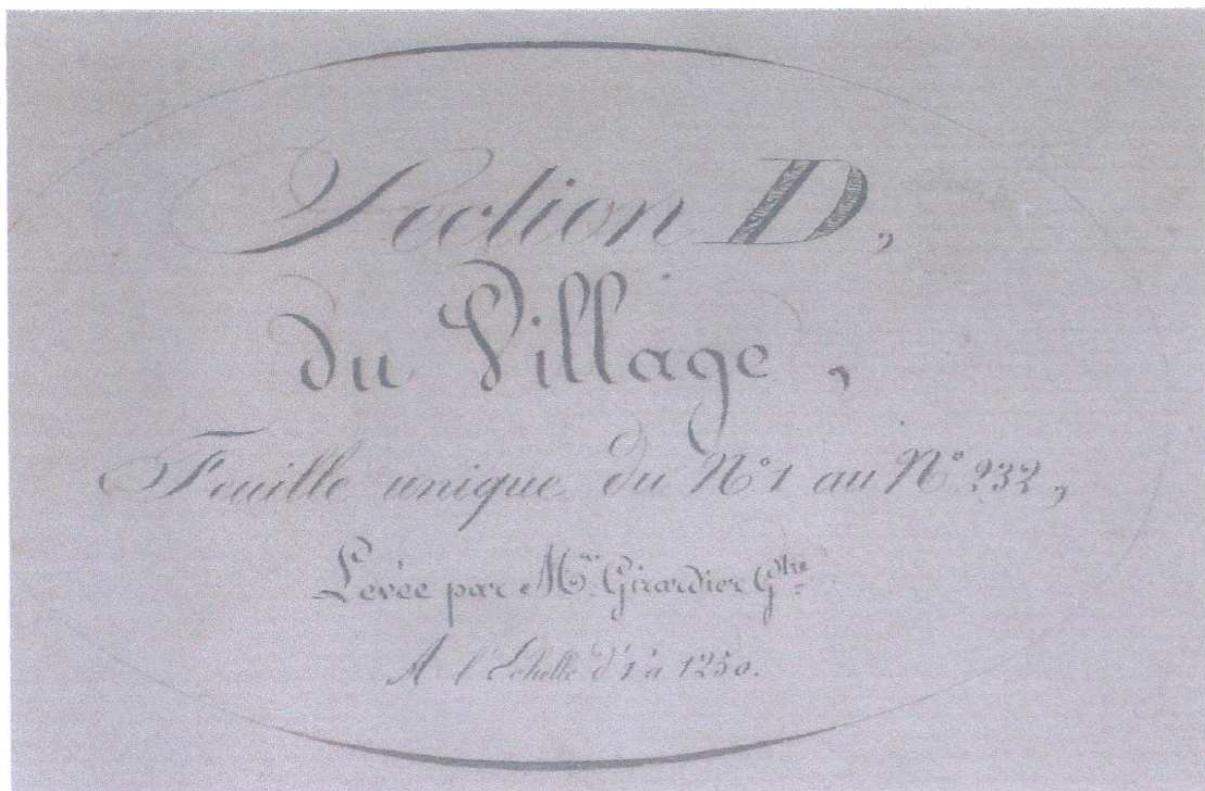 Section D,
du Village,
Feuille unique du N° 1 au N° 232,
Levée par Mr. Girardier Gtre
A l'Echelle d'1 à 1250.